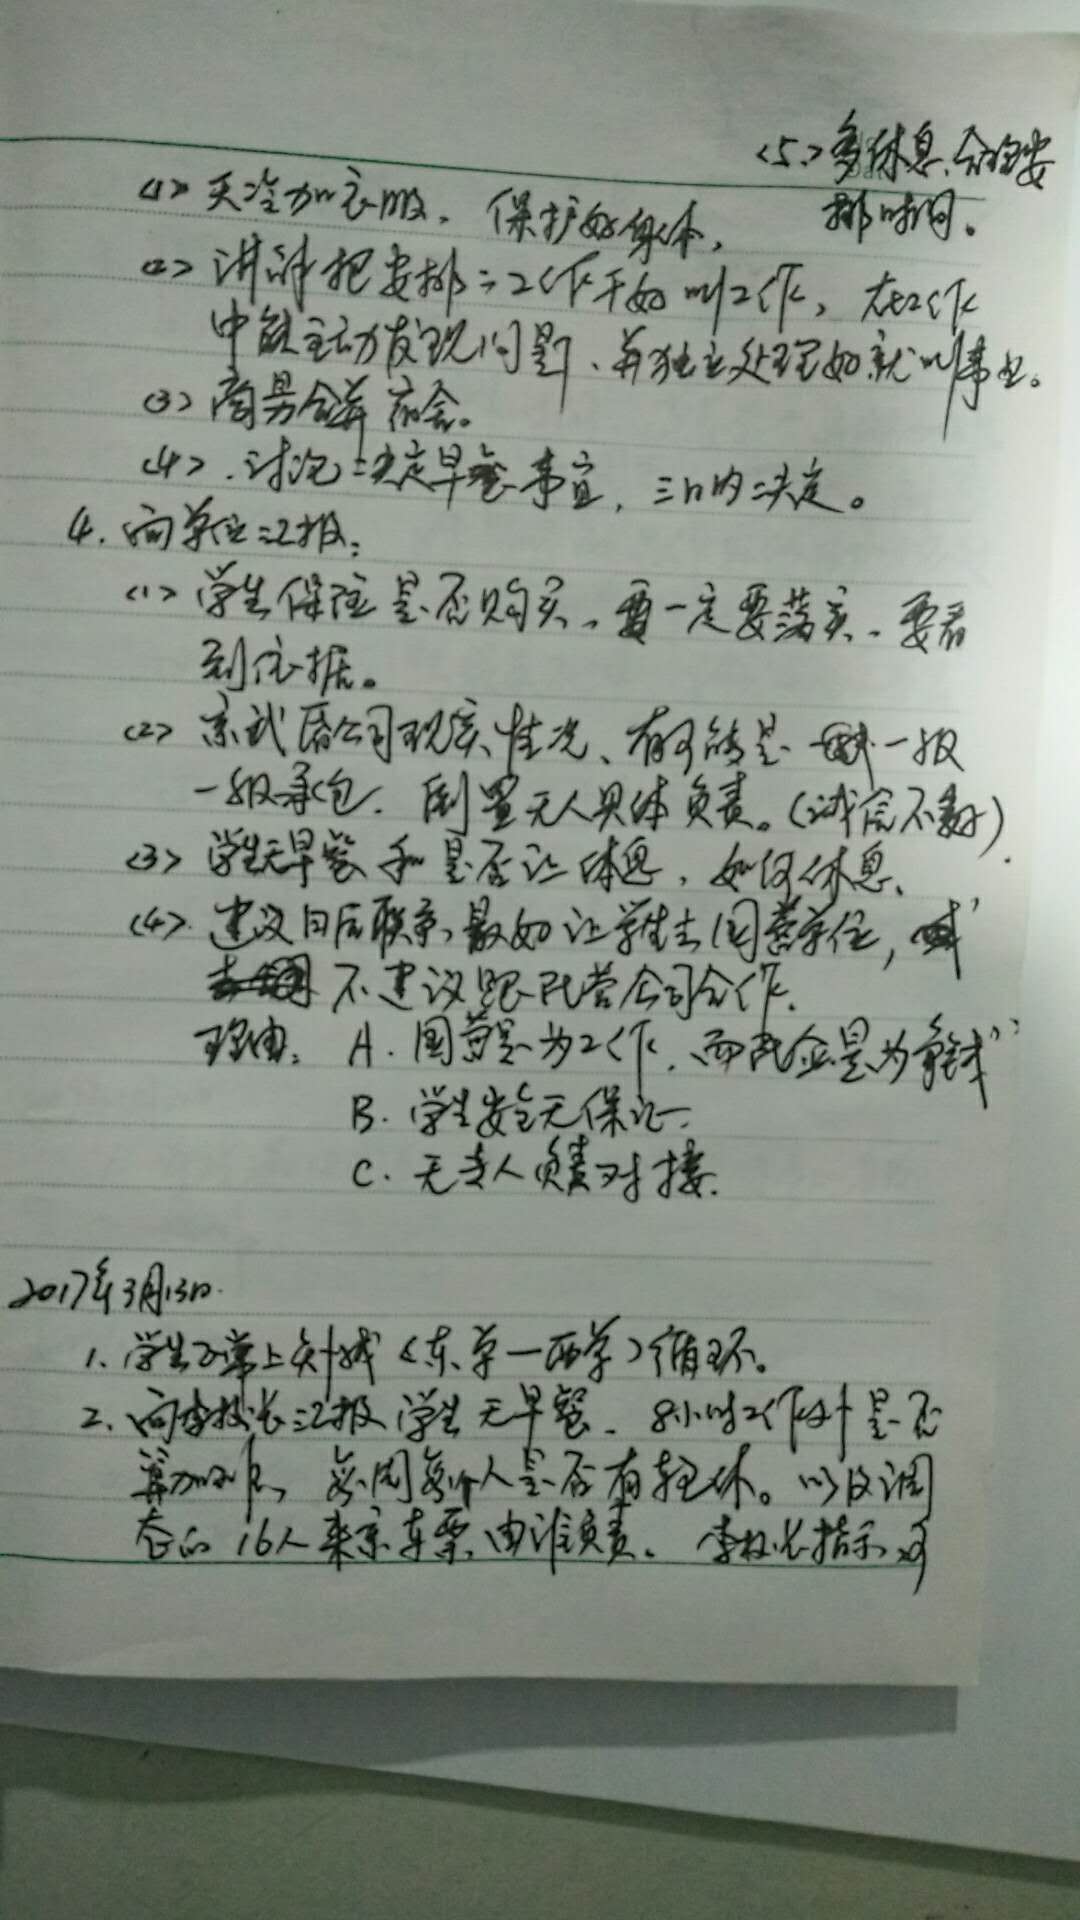 <5>多休息、合理安
排时间。
<1>天冷加衣服，保护好身体，
<2>讲解把安排的工作干好叫工作，在工作
中能主动发现问题、并独立处理好就叫事业。
<3>商男合并宿舍。
<4>.讨论决定早餐事宜，三日内决定。
4.向单位汇报：
<1>学生保险是否购买，一定要落实、要看
到依据。
<2>京武公司现实情况、有可能是一级
一级承包.倒置无人具体负责。(诚信不好)
<3>学生无早餐和是否让休息，如何休息、
<4>.建议日后联系，最好让学生去国营单位，
不建议跟民营公司合作.
理由：A.国营是为工作，而民企是为拿钱
B.学生安全无保证
C.无专人负责对接.
2017年3月13日.
1.学生正常上班<东单—西单>循环。
2.向李校长汇报学生无早餐、8小时工作外是否
算加班，每周每个人是否有轮休。以及调
的16人来京车票，由谁负责。李校长指示，对